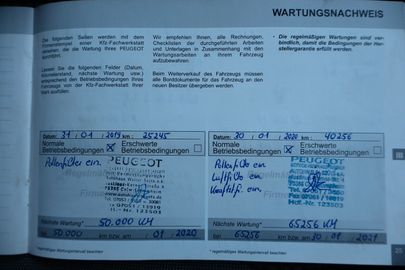 WARTUNGSNACHWEIS
Die folgenden Seiten werden mit dem
Firmenstempel einer Kfz-Fachwerkstatt
versehen, die die Wartung Ihres PEUGEOT
durchführt.
Lassen Sie die folgenden Felder (Datum,
Kilometerstand, nächste Wartung usw.)
entsprechend den Betriebsbedingungen Ihres
Fahrzeugs von der Kfz-Fachwerkstatt Ihrer
Wahl ausfüllen.
Wir empfehlen Ihnen, alle Rechnungen,
Checklisten der durchgeführten Arbeiten
und Unterlagen in Zusammenhang mit den
Wartungsarbeiten an Ihrem Fahrzeug
aufzubewahren.
Beim Weiterverkauf des Fahrzeugs müssen
alle Borddokumente für das Fahrzeug an den
neuen Besitzer übergeben werden.
• Die regelmäßigen Wartungen sind ver-
bindlich, damit die Bedingungen der Her-
stellergarantie erfüllt werden.
Datum: 31 / 01 / 2019 km : 25245
Normale Erschwerte
Betriebsbedingungen Betriebsbedingungen
Pollenfilter ein.
PEUGEOT
Nächste Wartung*
50.000 KM
50.000 km bzw. am / 01 / 2020
* regelmäßiges Wartungsintervall beachten
Datum: 30 / 01 / 2020 km : 40256
Normale Erschwerte
Betriebsbedingungen Betriebsbedingungen
Pollenfilter ein
Luftfilter ein
Kraftstf. ein
PEUGEOT
Nächste Wartung*
65256 KM
bei 65256 km bzw. am 30 / 01 / 2021
* regelmäßiges Wartungsintervall beachten
25